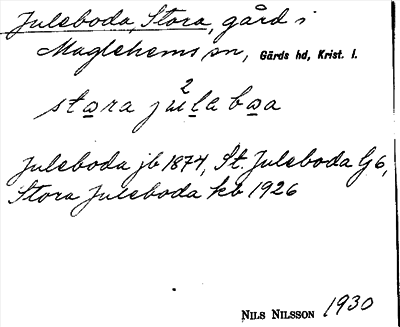 Juleboda, Stora, gård i
Maglehems sn, Gärds hd, Krist. l.
2
stora julaboa
Juleboda jb 1874, St. Juleboda Gj 6,
Stora Juleboda kb 1926
NILS NILSSON 1930